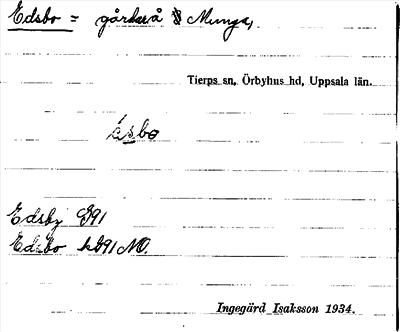 Edsbo = gårdar å Munga,
Tierps sn, Örbyhus hd, Uppsala län.
ésbo
Edsby G91
Edsbo kG91 NO.
Ingegärd Isaksson 1934.